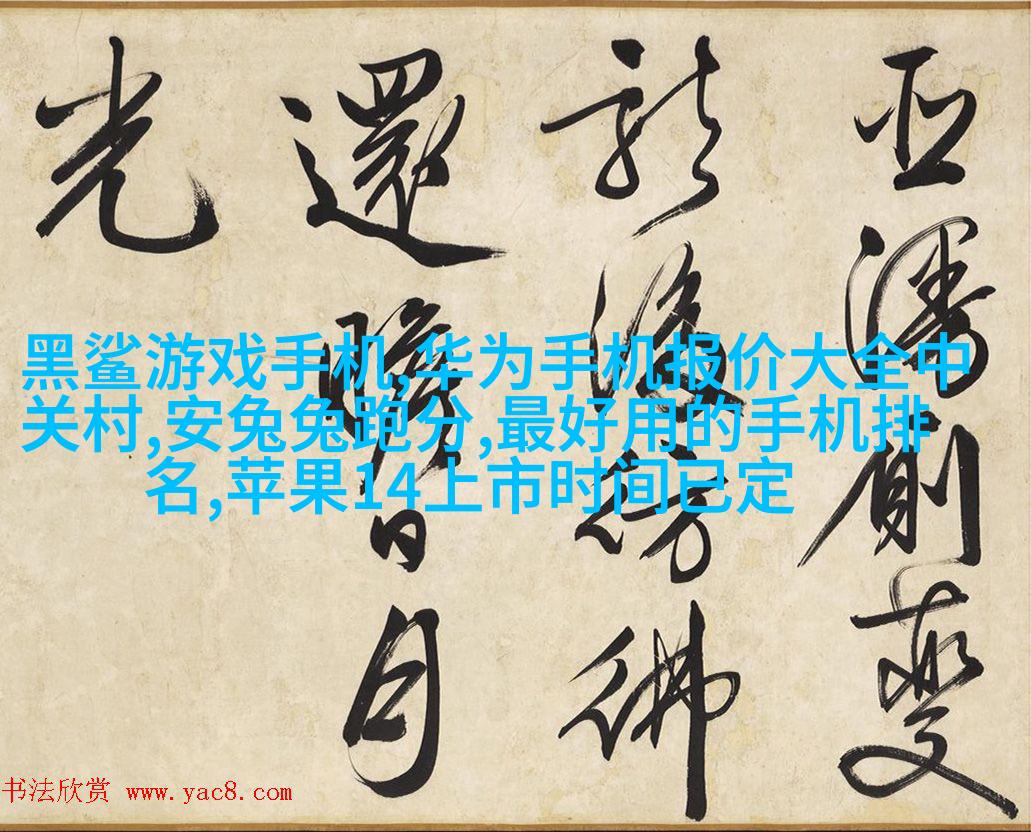 變
彷彿
還瞻日月
光
黑鲨游戏手机,华为手机报价大全中
关村,安兔兔跑分,最好用的手机排
名,苹果14上市时间已定
书法欣赏 www.yac8.com